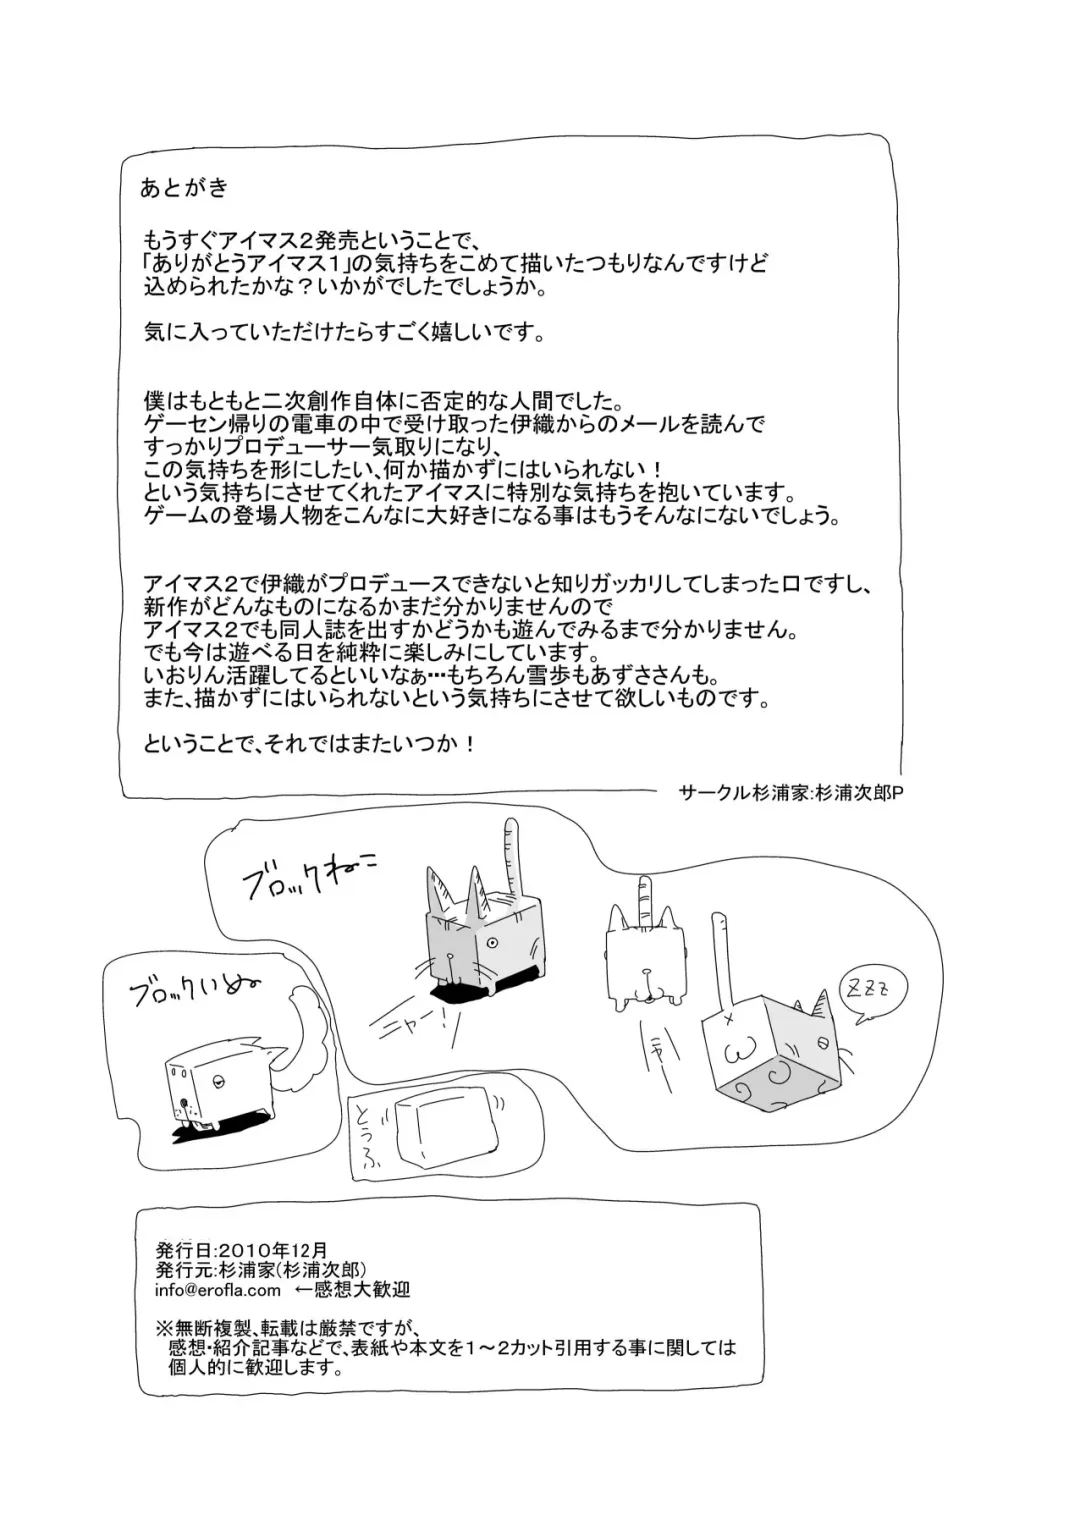 あとがき
もうすぐアイマス２発売ということで、
「ありがとうアイマス１」の気持ちをこめて描いたつもりなんですけど
込められたかな？いかがでしたでしょうか。
気に入っていただけたらすごく嬉しいです。
僕はもともと二次創作自体に否定的な人間でした。
ゲーセン帰りの電車の中で受け取った伊織からのメールを読んで
すっかりプロデューサー気取りになり、
この気持ちを形にしたい、何か描かずにはいられない！
という気持ちにさせてくれたアイマスに特別な気持ちを抱いています。
ゲームの登場人物をこんなに大好きになる事はもうそんなにないでしょう。
アイマス２で伊織がプロデュースできないと知りガッカリしてしまった口ですし、
新作がどんなものになるかまだ分かりませんので
アイマス２でも同人誌を出すかどうかも遊んでみるまで分かりません。
でも今は遊べる日を純粋に楽しみにしています。
いおりん活躍してるといいなぁ…もちろん雪歩もあずささんも。
また、描かずにはいられないという気持ちにさせて欲しいものです。
ということで、それではまたいつか！
サークル杉浦家:杉浦次郎P
ブロックねこ
ニャー！
ニャー
ZZZ
ブロックいぬ
とうふ
発行日:２０１０年12月
発行元:杉浦家(杉浦次郎)
info@erofla.com ←感想大歓迎
※無断複製、転載は厳禁ですが、
感想・紹介記事などで、表紙や本文を１～２カット引用する事に関しては
個人的に歓迎します。